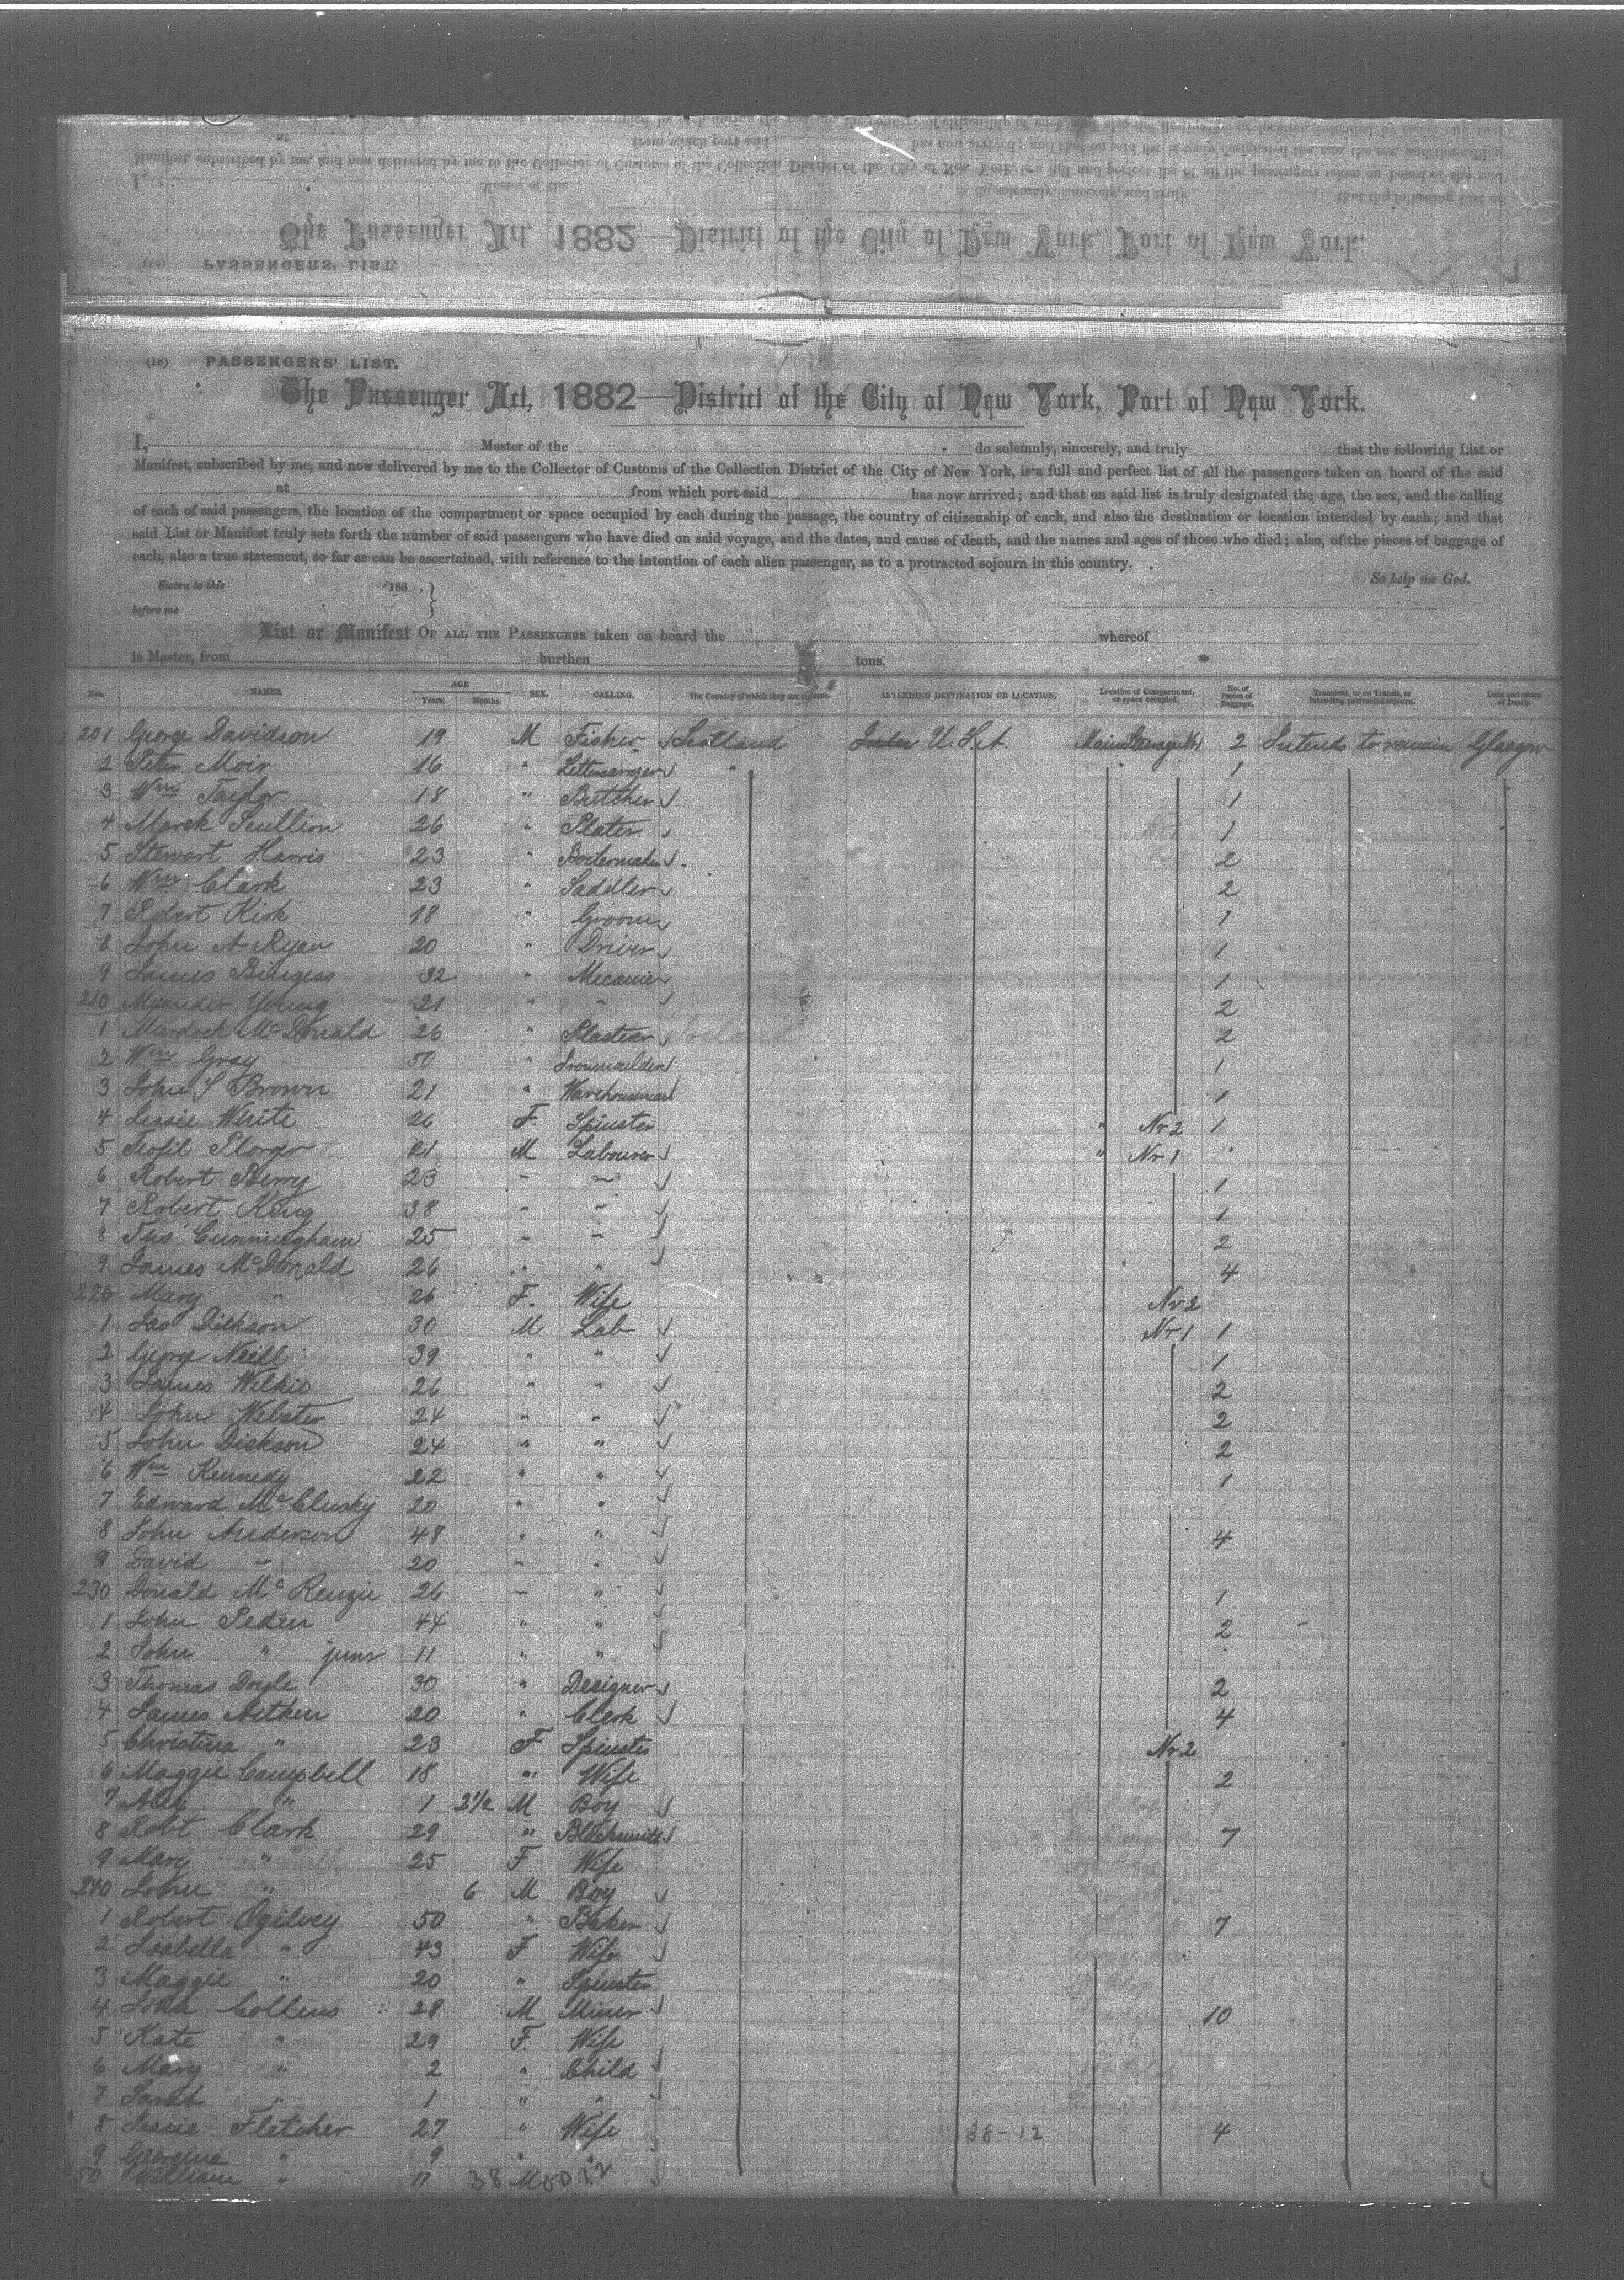 (18) PASSENGERS' LIST.
The Passenger Act, 1882—District of the City of New York, Port of New York.
I, Master of the do solemnly, sincerely, and truly that the following List or
Manifest, subscribed by me, and now delivered by me to the Collector of Customs of the Collection District of the City of New York, is a full and perfect list of all the passengers taken on board of the said
at from which port said has now arrived; and that on said list is truly designated the age, the sex, and the calling
of each of said passengers, the location of the compartment or space occupied by each during the passage, the country of citizenship of each, and also the destination or location intended by each; and that
said List or Manifest truly sets forth the number of said passengers who have died on said voyage, and the dates, and cause of death, and the names and ages of those who died; also, of the pieces of baggage of
each, also a true statement, so far as can be ascertained, with reference to the intention of each alien passenger, as to a protracted sojourn in this country.
So help me God.
Sworn to this 188 .
before me
List or Manifest OF ALL THE PASSENGERS taken on board the whereof
is Master, from burthen tons.
No. NAMES. AGE Years. Months. SEX. CALLING. The Country of which they are citizens. INTENDING DESTINATION OR LOCATION. Location of Compartment, or space occupied. No. of Pieces of Baggage. Transient, or on Transit, or intending protracted sojourn. Date and cause of Death.
201 George Davidson 19 M Fisher Scotland U.S.A. Main Steerage Nr 1 2 Intends to remain Glasgow
2 Peter Moir 16 " " 1
3 Wm Taylor 18 " Butcher 1
4 Mark Scullion 26 " Plater 1
5 Stewart Harris 23 " Boilermaker 2
6 Wm Clark 23 " Saddler 2
7 Robert Kirk 18 " Groom 1
8 John A Ryan 20 " Driver 1
9 James Burgess 32 " Mecanic 1
210 Young 21 " " 2
1 Murdock McDonald 26 " Plasterer 2
2 Wm Gray 50 " Ironmoulder 1
3 John S Brown 21 " Warehouseman 1
4 Jessie White 26 F Spinster " Nr 2 1
5 21 M Labourer " Nr 1 "
6 Robert Berry 23 " " 1
7 Robert King 38 " " 1
8 Cunningham 25 " " 2
9 James McDonald 26 " " 4
220 Mary " 26 F. Wife Nr 2
1 Jas Dickson 30 M Lab Nr 1 1
2 George Neill 39 " " 1
3 James Wilkie 26 " " 2
4 John Webster 24 " " 2
5 John Dickson 24 " " 2
6 Wm Kennedy 22 " " 1
7 Edward McClusky 20 " "
8 John Anderson 48 " " 4
9 David " 20 " "
230 Donald McKenzie 26 " " 1
1 John Peden 44 " " 2
2 John " junr 11 " "
3 Thomas Doyle 30 " Designer 2
4 James Aitken 20 " Clerk 4
5 Christina " 23 F Spinster Nr 2
6 Maggie Campbell 18 " Wife 2
7 Alex " 1 2½ M Boy
8 Robt Clark 29 " Blacksmith 7
9 Mary " 25 F Wife
240 John " 6 M Boy
1 Robert Ogilvey 50 " Baker 7
2 Isabella " 43 F Wife
3 Maggie " 20 " Spinster
4 John Collins 28 M Miner 10
5 Kate " 29 F. Wife
6 Mary " 2 " Child
7 Sarah " 1 " "
8 Jessie Fletcher 27 " Wife 38-12 4
9 Georgina " 9 " "
50 William " 11 M
38 50 12